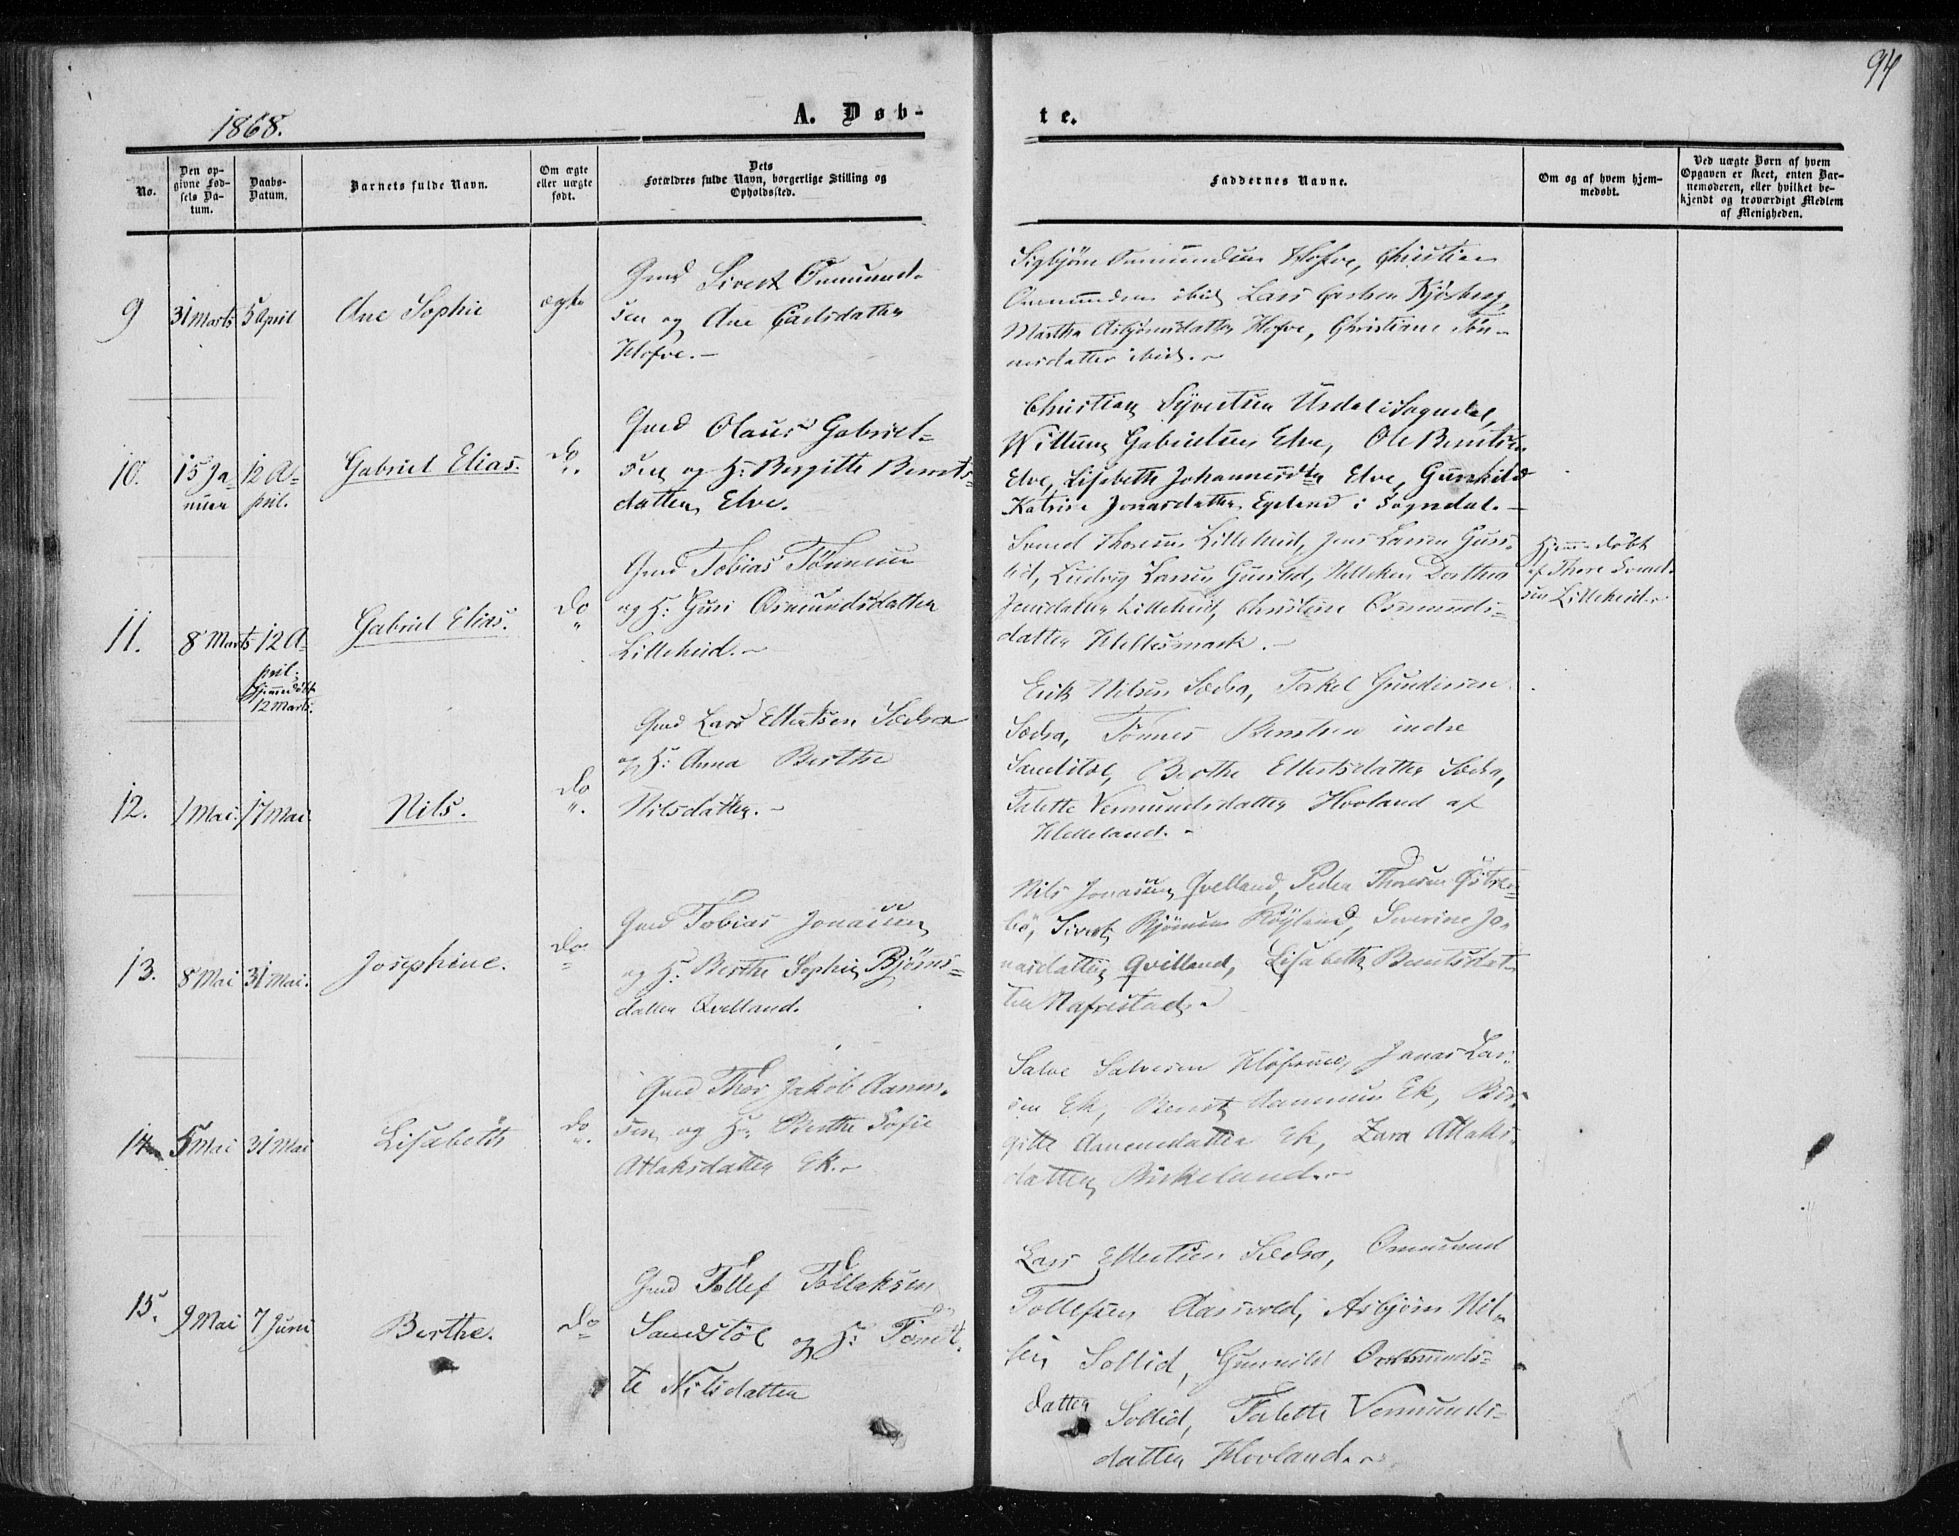 94
1868.
A. Døb-
te.
No.
Den op-
givne Fød-
sels Da-
tum.
Daabs-
Datum.
Barnets fulde Navn.
Om ægte
eller uægte
født.
Dets
Forældres fulde Navn, borgerlige Stilling og
Opholdssted.
Faddernes Navne.
Om og af hvem hjem-
medøbt.
Ved uægte Børn af hvem
Opgaven er skeet, enten Bar-
nemoderen, eller hvilket be-
kjendt og troværdigt Medlem
af Menigheden.
9
31 Marts
5 April
Ane Sophie
ægte
Gmd Sivert Omund-
sen og Ane Carlsdatter
Hofve.-
Sigbjørn Omundsen Hofve, Christian
Omundsen ibid, Lars Carlsen
Martha Asbjørnsdatter Hofve, Christiane Tøn-
nesdatter ibid.-
10.
15 Ja-
nuar
12 A-
pril.
Gabriel Elias.
do
Gmd Olaus Gabriel-
sen og H: Bergitte Bernts-
datter Elve.
Christian Syvertsen Urdal i Sogndal,
Willum Gabrielsen Elve, Ole Berntsen
Elve, Lisabeth Johannesdtr Elve, Gunhild
Katrine Jonasdatter Egeland i Sogndal.-
11.
8 Marts
12 A-
pril.
Hjemmedøbt
12 Marts.
Gabriel Elias.
do
Gmd Tobias Tønnesen
og H: Guri Osmundsdatter
Lilleheid.-
Svend Thoresen Lilleheid, Jens Larsen Guse-
lid, Ludvig Larsen Guselid, Dorthea
Jensdatter Lilleheid, Christine Osmunds-
datter Hellesmark.-
Hjemmedøbt
af Thore Svend-
sen Lilleheid.
12.
1 Mai.
17 Mai.
Nils.
do
Gmd Lars Ellertsen Sædra
og H: Anna Berthe
Nilsdatter.-
Erik Nilsen Sædra, Torkel Gundersen
Sædra, Tønnes Berntsen indre
Sandstøl, Berthe Ellertsdatter Sædra,
Talette Vermundsdatter Hovland af
Helleland.-
13.
8 Mai
31 Mai.
Josephine.
do
Gmd Tobias Jonassen
og H: Berthe Sophie Bjørns-
datter Qvelland.
Nils Jonassen Qvelland, Peder Thoresen Østre-
bø, Sivert Bjørnsen Røyland, Severine Jo-
nasdatter Qvilland, Lisabeth Berntsdat-
ter Hafvestad.
14
5 Mai
31 Mai
Lisabeth
do
Gmd Thor Jakob Aanen-
sen og H: Berthe Sofie
Atlaksdatter Ek.-
Salve Salvesen Jonas Lar-
sen Ek, Bernt Aanensen Ek, Ber-
gitte Aanensdatter Ek, Zara Atlaks-
datter Birkeland.-
15.
9 Mai
7 Juni
Berthe.
do
Gmd Tollef Tollaksen
Sandstøl og H: Tonet-
te Nilsdatter
Lars Ellertsen Sædra, Omund
Tollefsen Aarsvold, Asbjørn Nil-
sen Sollid, Gunhild Osmunds-
datter Sollid, Talette Vermunds-
datter Hovland.-